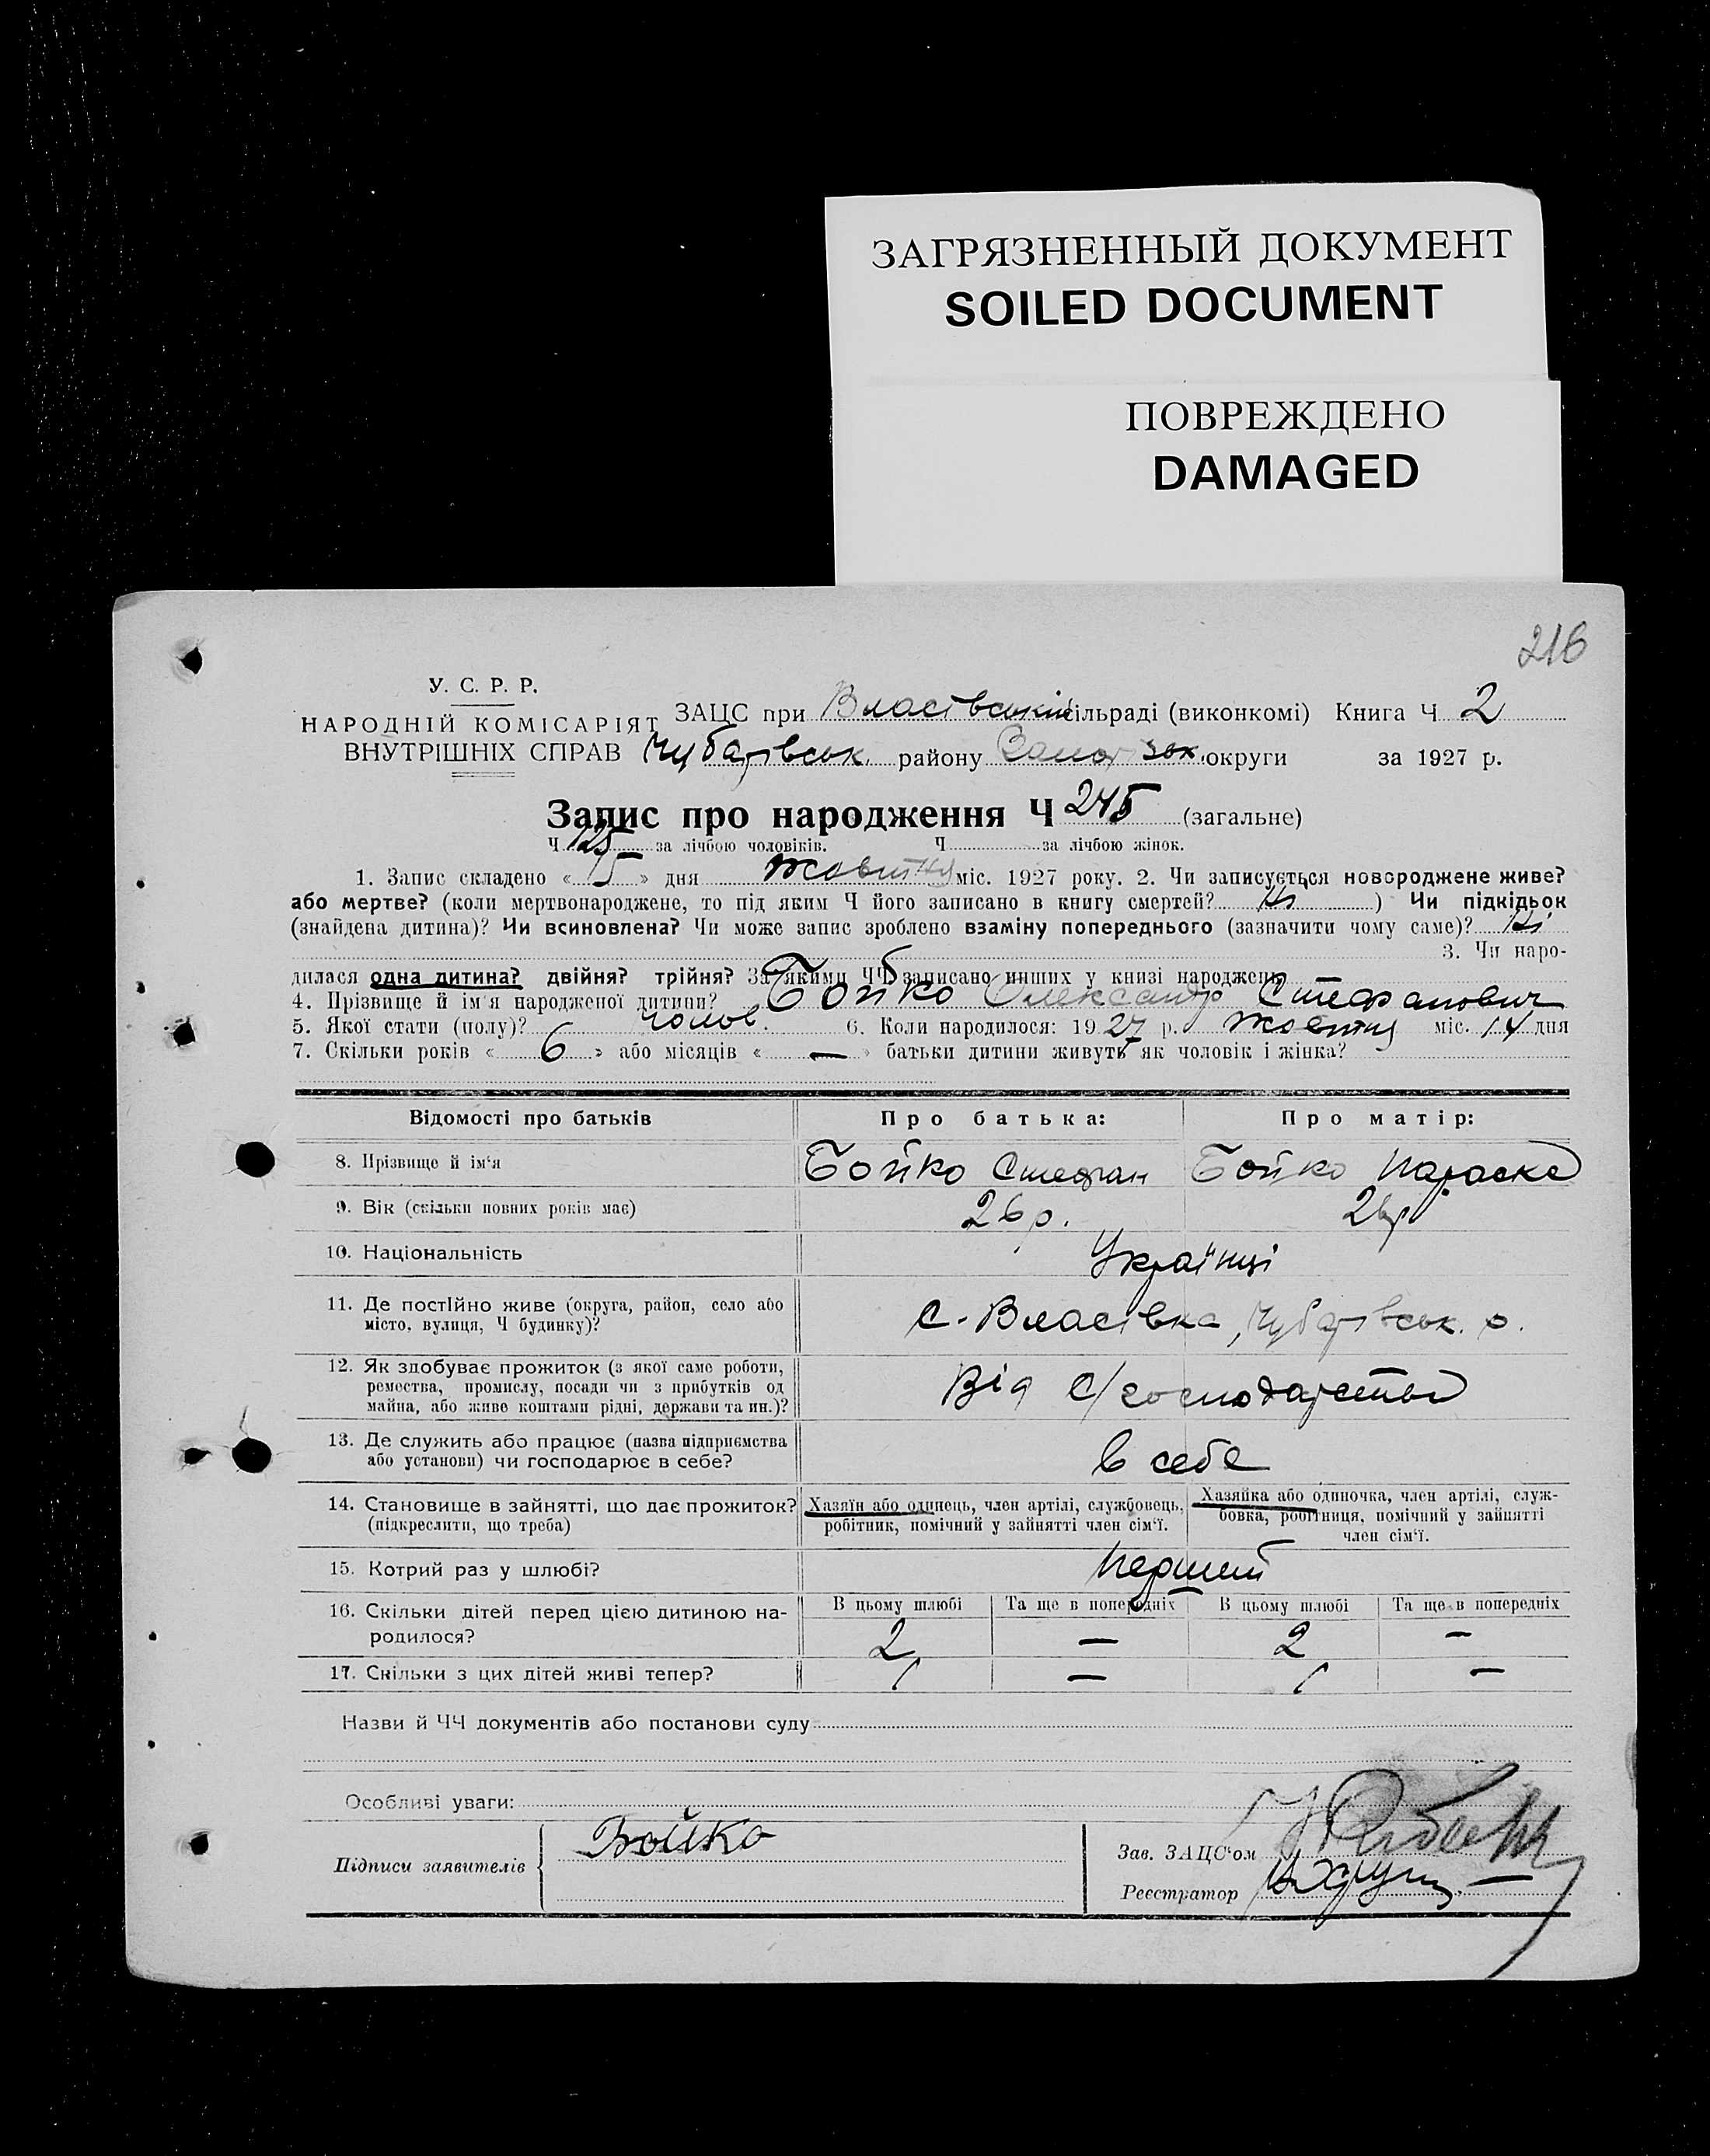 ЗАГРЯЗНЕННЫЙ ДОКУМЕНТ
SOILED DOCUMENT
ПОВРЕЖДЕНО
DAMAGED
216
У. С. Р. Р.
НАРОДНІЙ КОМІСАРІЯТ
ВНУТРІШНІХ СПРАВ
ЗАЦС при Власівській сільраді (виконкомі) Книга Ч 2
Чубарівськ. району Запорізьк. округи за 1927 р.
Запис про народження Ч 245 (загальне)
Ч 125 за лічбою чоловіків. Ч за лічбою жінок.
1. Запис складено « 15 » дня Жовтня міс. 1927 року. 2. Чи записується новороджене живе?
або мертве? (коли мертвонароджене, то під яким Ч його записано в книгу смертей? Ні ) Чи підкідьок
(знайдена дитина)? Чи всиновлена? Чи може запис зроблено взаміну попереднього (зазначити чому саме)? Ні
3. Чи наро-
дилася одна дитина? двійня? трійня? За якими ЧЧ записано инших у книзі народжень
4. Прізвище й ім'я народженої дитини? Бойко Олександр Стефанович
5. Якої стати (полу)? чолов. 6. Коли народилося: 1927 р. Жовтня міс. 14 дня
7. Скільки років « 6 » або місяців « — » батьки дитини живуть як чоловік і жінка?
Відомості про батьків Про батька: Про матір:
8. Прізвище й ім'я Бойко Стефан Бойко Параска
9. Вік (скільки повних років має) 26 р. 26 р
10. Національність Українці
11. Де постійно живе (округа, район, село або
місто, вулиця, Ч будинку)? С. Власівка, Чубарівськ. р.
12. Як здобуває прожиток (з якої саме роботи,
ремества, промислу, посади чи з прибутків од
майна, або живе коштами рідні, держави та ин.)? Від С/господарства
13. Де служить або працює (назва підприємства
або установи) чи господарює в себе? в себе
14. Становище в зайнятті, що дає прожиток?
(підкреслити, що треба)
Хазяїн або одинець, член артілі, службовець,
робітник, помічний у зайнятті член сім'ї.
Хазяйка або одиночка, член артілі, служ-
бовка, робітниця, помічний у зайнятті
член сім'ї.
15. Котрий раз у шлюбі? Перший
16. Скільки дітей перед цією дитиною на-
родилося?
В цьому шлюбі Та ще в попередніх В цьому шлюбі Та ще в попередніх
2 — 2 —
17. Скільки з цих дітей живі тепер? 1 — 1 —
Назви й ЧЧ документів або постанови суду
Особливі уваги:
Підписи заявителів Бойко
Зав. ЗАЦС'ом
Реєстратор